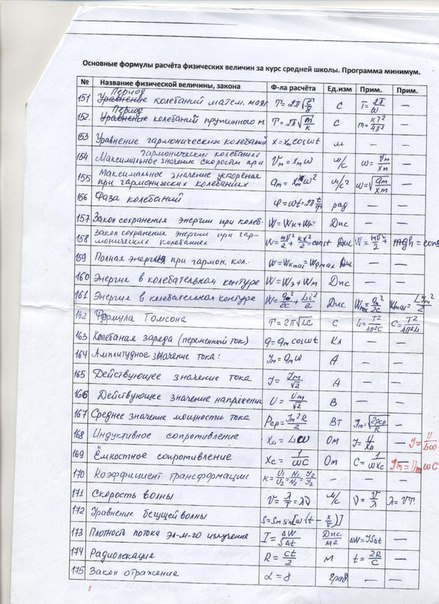 Основные формулы расчёта физических величин за курс средней школы. Программа минимум.
№ Название физической величины, закона Ф-ла расчёта Ед.изм Прим. Прим.
151 Период колебаний матем. маят T=2π√(ℓ/g) с T=2π/ω —
152 Период колебаний пружинного м T=2π√(m/k) с m=kT²/4π² —
153 Уравнение гармонических колебаний x=xm cosωt м — —
154 Максимальное значение скорости при гармонических колебаниях Vm=xmω м/с ω=Vm/xm —
155 Максимальное значение ускорения при гармонических колебаниях am=xmω² м/с² ω=√(am/xm) —
156 Фаза колебаний φ=ωt=2π t/T рад — —
157 Закон сохранения энергии при колеб. W=Wк+Wп Дж — —
158 Закон сохранения энергии при гармонических колебаниях W=mV²/2+kx²/2=const Дж
159 Полная энергия при гармон. кол. W=Wкmax=Wpmax Дж —
160 Энергия в колебательном контуре W=Wэ+Wм Дж — —
161 Энергия в колебательном контуре W=q²/2C+Li²/2 Дж
162 Формула Томсона T=2π√LC с L=T²/4π²C C=T²/4π²L
163 Колебания заряда (переменный ток) q=qm cosωt Кл — —
164 Амплитудное значение тока: Im=qmω А — —
165 Действующее значение тока I=Im/√2 А — —
166 Действующее значение напряжения U=Um/√2 В — —
167 Среднее значение мощности тока Pср=Im²R/2 Вт Im=√(2Pср/R) —
168 Индуктивное сопротивление XL=Lω Ом —
169 Ёмкостное сопротивление Xc=1/ωC Ом C=1/ωXc Im=UmωC
170 Коэффициент трансформации — —
171 Скорость волны V=λ/T=λν м/с ν=V/λ λ=VT
172 Уравнение бегущей волны S=Sm sin[ω(t-x/V)] — —
173 Плотность потока эл-м-го излучения I=ΔW/SΔt ΔW=ISΔt —
174 Радиолокация R=ct/2 м t=2R/c —
175 Закон отражения α=γ град — —